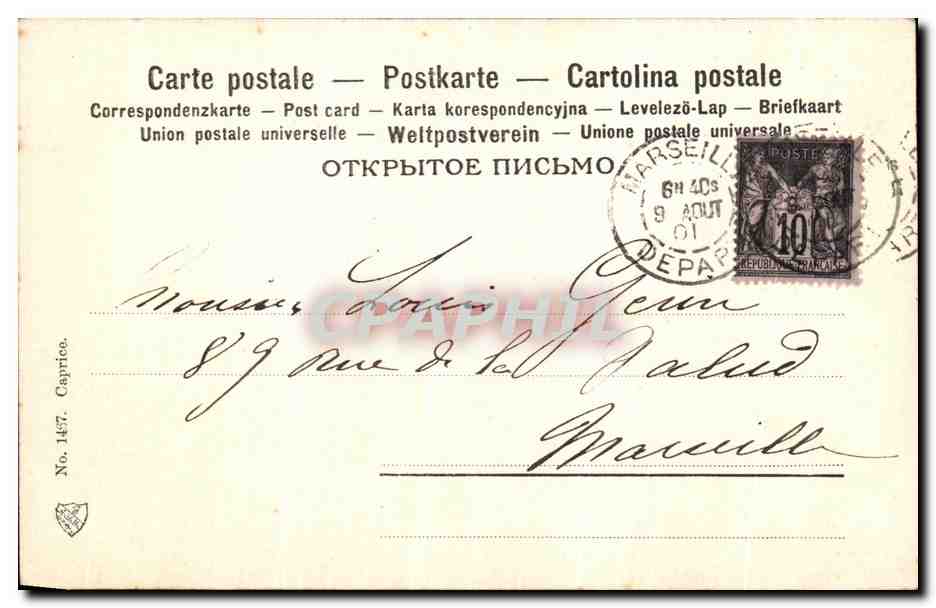 Carte postale — Postkarte — Cartolina postale
Correspondenzkarte — Post card — Karta korespondencyjna — Levelezö-Lap — Briefkaart
Union postale universelle — Weltpostverein — Unione postale universale —
ОТКРЫТОЕ ПИСЬМО.
MARSEILL
6H 40S
9 AOUT
01
DEPAR
POSTE
10
REPUBLIQUE FRANCAISE
Monsieur Louis
89 Rue de la Salud
Marseille
CPAPHIL
No. 1467. Caprice.